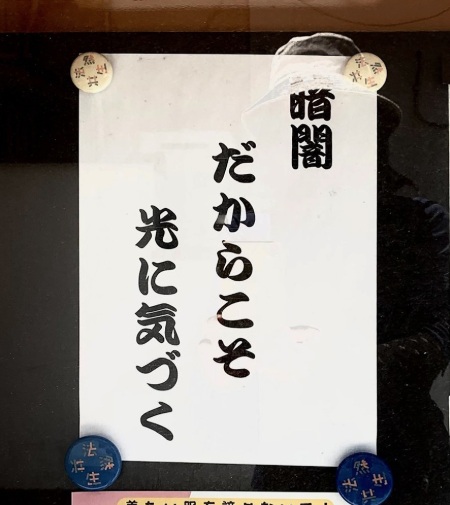 暗闇
だからこそ
光に気づく